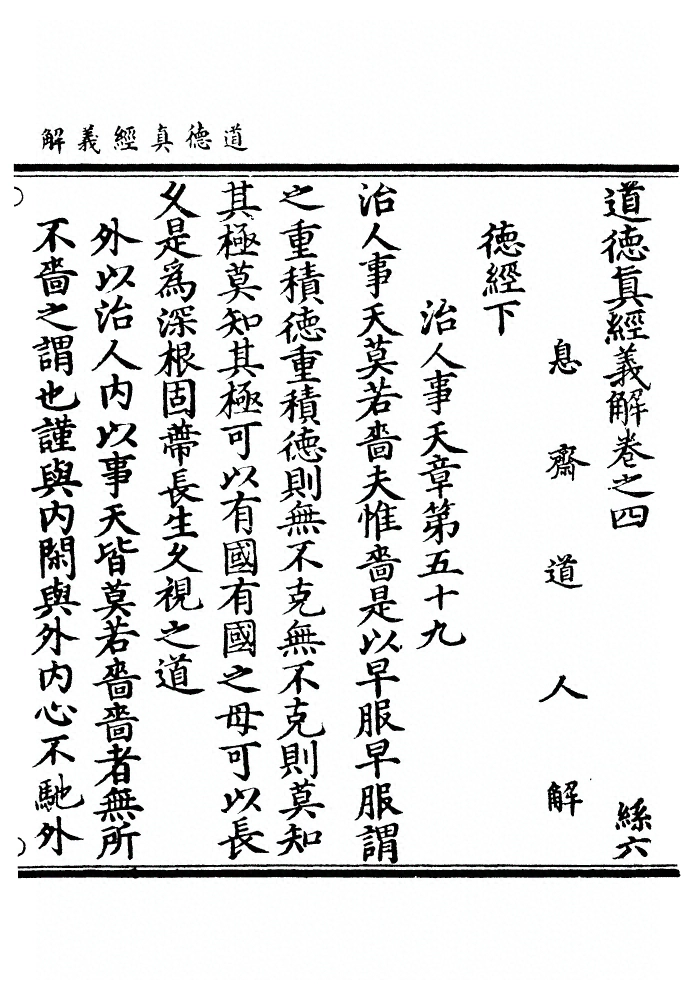 道德真經義解
道德眞經義解卷之四　絲六
息齋道人解
德經下
治人事天章第五十九
治人事天莫若嗇夫惟嗇是以早服早服謂
之重積德重積德則無不克無不克則莫知
其極莫知其極可以有國有國之母可以長
久是爲深根固蔕長生久視之道
外以治人内以事天皆莫若嗇嗇者無所
不嗇之謂也謹與内閑與外内心不馳外